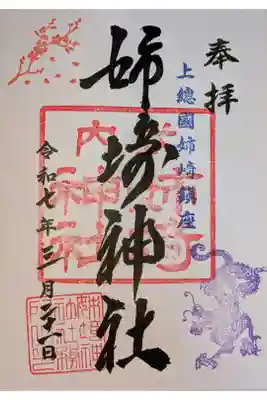 奉拝
上總國姉崎鎮座
姉埼神社
令和七年三月二十一日